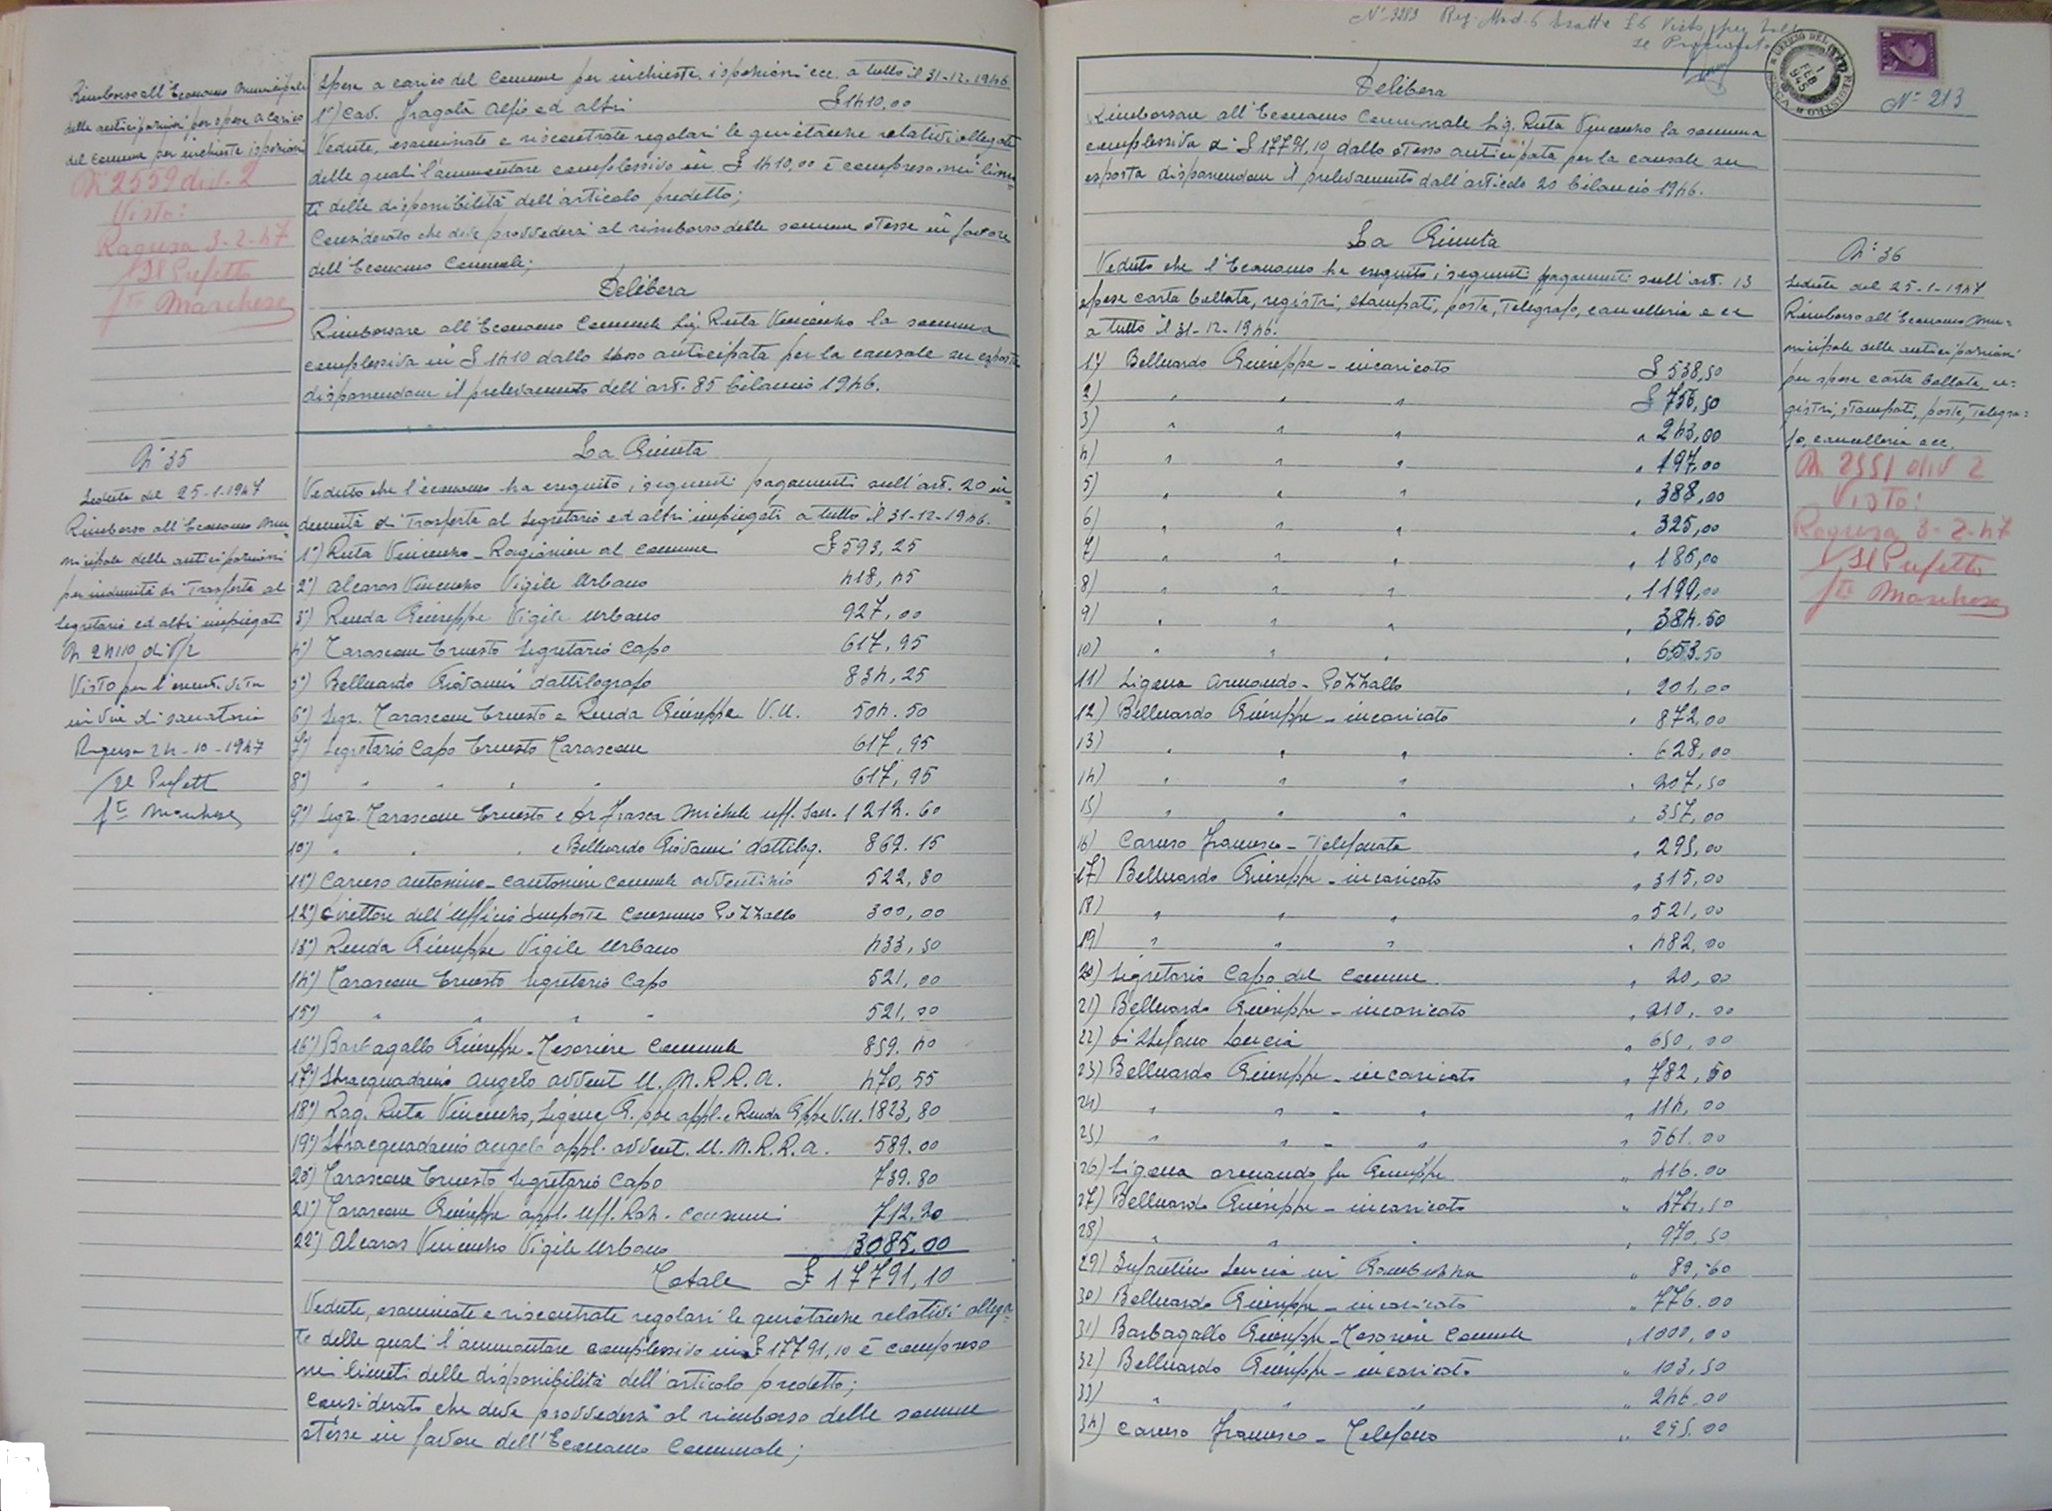 Rimborso all'Economo Municipale
delle anticipazioni per spese a carico
del Comune per inchieste ispezioni
N 2559 div. 2
Visto:
Ragusa 3-2-47
Il Prefetto
fto Marchese
Spese a carico del Comune per inchieste, ispezioni ecc. a tutto il 31-12-1946
1°) Cav. Fragalà Alfio ed altri £ 1410,00
Vedute, esaminate e riscontrate regolari le quietanze relative allegate
delle quali l'ammontare complessivo in £ 1410,00 è compreso nei limi-
ti delle disponibilità dell'articolo predetto;
Considerato che deve provvedersi al rimborso delle somme stesse in favore
dell'Economo Comunale;
Delibera
Rimborsare all'Economo Comunale Sig. Ruta Vincenzo la somma
complessiva in £ 1410 dallo stesso anticipata per la causale su esposta
disponendone il prelevamento dell'art. 85 bilancio 1946.
N° 35
Seduta del 25-1-1947
Rimborso all'Economo Mu-
nicipale delle anticipazioni
per indennità di Trasferta al
Segretario ed altri impiegati
N 24110 div/2
Visto per l'esecutività
in via di sanatoria
Ragusa 24-10-1947
Il Prefett
fto Marchese
La Giunta
Veduto che l'economo ha eseguito i seguenti pagamenti sull'art. 20 in-
dennità di Trasferta al Segretario ed altri impiegati a tutto il 31-12-1946.
1°) Ruta Vincenzo - Ragioniere al Comune £ 593,25
2°) Alcaras Vincenzo Vigile Urbano 418,45
3°) Renda Giuseppe Vigile Urbano 927,00
4°) Tarascone Ernesto Segretario Capo 617,95
5°) Belluardo Giovanni dattilografo 834,25
6°) Segr. Tarascone Ernesto e Renda Giuseppe V.U. 504.50
7°) Segretario Capo Ernesto Tarascone 617,95
8°) " " " " 617,95
9°) Segr. Tarascone Ernesto e Dr Frasca Michele uff. San. 1212.60
10°) " " " e Belluardo Giovanni dattilog. 869.15
11°) Caruso Antonino - Cantoniere Comunale avventizio 522,80
12°) Direttore dell'Ufficio Imposte Consumo Pozzallo 300,00
13°) Renda Giuseppe Vigile Urbano 433,50
14°) Tarascone Ernesto Segretario Capo 521,00
15°) " " " " 521.00
16°) Barbagallo Giuseppe - Tesoriere Comunale 859.40
17°) Stracquadanio Angelo avvent U.N.R.R.A. 470,55
18°) Rag. Ruta Vincenzo, Ligene G.ppe appl. e Renda G.ppe V.U. 1823,80
19°) Stracquadanio Angelo appl. avvent. U.N.R.R.A. 589.00
20°) Tarascone Ernesto Segretario Capo 739.80
21°) Tarascone Giuseppe appl. uff. Raz. consumi 712.20
22°) Alcaras Vincenzo Vigile Urbano 3085.00
Totale £ 17791,10
Vedute, esaminate e riscontrate regolari le quietanze relative allega-
te delle quali l'ammontare complessivo in £ 17791,10 è compreso
nei limiti delle disponibilità dell'articolo predetto;
Considerato che deve provvedersi al rimborso delle somme
stesse in favore dell'Economo Comunale;
N° 3283 Reg. Mod. 6 Esatte £ 6 Visto per bollo
Il Procuratore
N° 213
Delibera
Rimborsare all'Economo Comunale Sig. Ruta Vincenzo la somma
complessiva di £ 17791,10 dallo stesso anticipata per la causale su
esposta disponendone il prelevamento dall'articolo 20 bilancio 1946.
La Giunta
Veduto che l'Economo ha eseguito i seguenti pagamenti sull'art. 13
spese carta bollata, registri, stampati, poste, Telegrafo, cancelleria e ecc
a tutto il 31-12-1946.
1) Belluardo Giuseppe - incaricato £ 538,50
2) " " " £ 756,50
3) " " " " 243,00
4) " " " " 197,00
5) " " " " 388,00
6) " " " " 325,00
7) " " " " 186,00
8) " " " " 1199,00
9) " " " " 384.50
10) " " " " 653.50
11) Ligena Armando - Pozzallo " 201,00
12) Belluardo Giuseppe - incaricato " 872,00
13) " " " " 628,00
14) " " " " 207,50
15) " " " " 357,00
16) Caruso Francesco - Telefonata " 295,00
17) Belluardo Giuseppe - incaricato " 315,00
18) " " " " 521,00
19) " " " " 482,00
20) Segretario Capo del Comune " 20,00
21) Belluardo Giuseppe - incaricato " 210,00
22) Di Stefano Lucia " 650,00
23) Belluardo Giuseppe - incaricato " 782,50
24) " " " " 114,00
25) " " " " 561.00
26) Ligena Armando fu Giuseppe " 416.00
27) Belluardo Giuseppe - incaricato " 474,50
28) " " " " 970,50
29) Infantino Lucia in " 89,60
30) Belluardo Giuseppe - incaricato " 776.00
31) Barbagallo Giuseppe - Tesoriere Comunale " 1000,00
32) Belluardo Giuseppe - incaricato " 103,50
33) " " " " 246.00
34) Caruso Francesco - Telefono " 295.00
N° 36
Seduta del 25-1-1947
Rimborso all'Economo Mu-
nicipale delle anticipazioni
per spese carta bollata, re-
gistri, stampati, poste, Telegra-
fo, cancelleria ecc.
N 2551 div 2
Visto:
Ragusa 3-2-47
Il Prefetto
fto Marchese